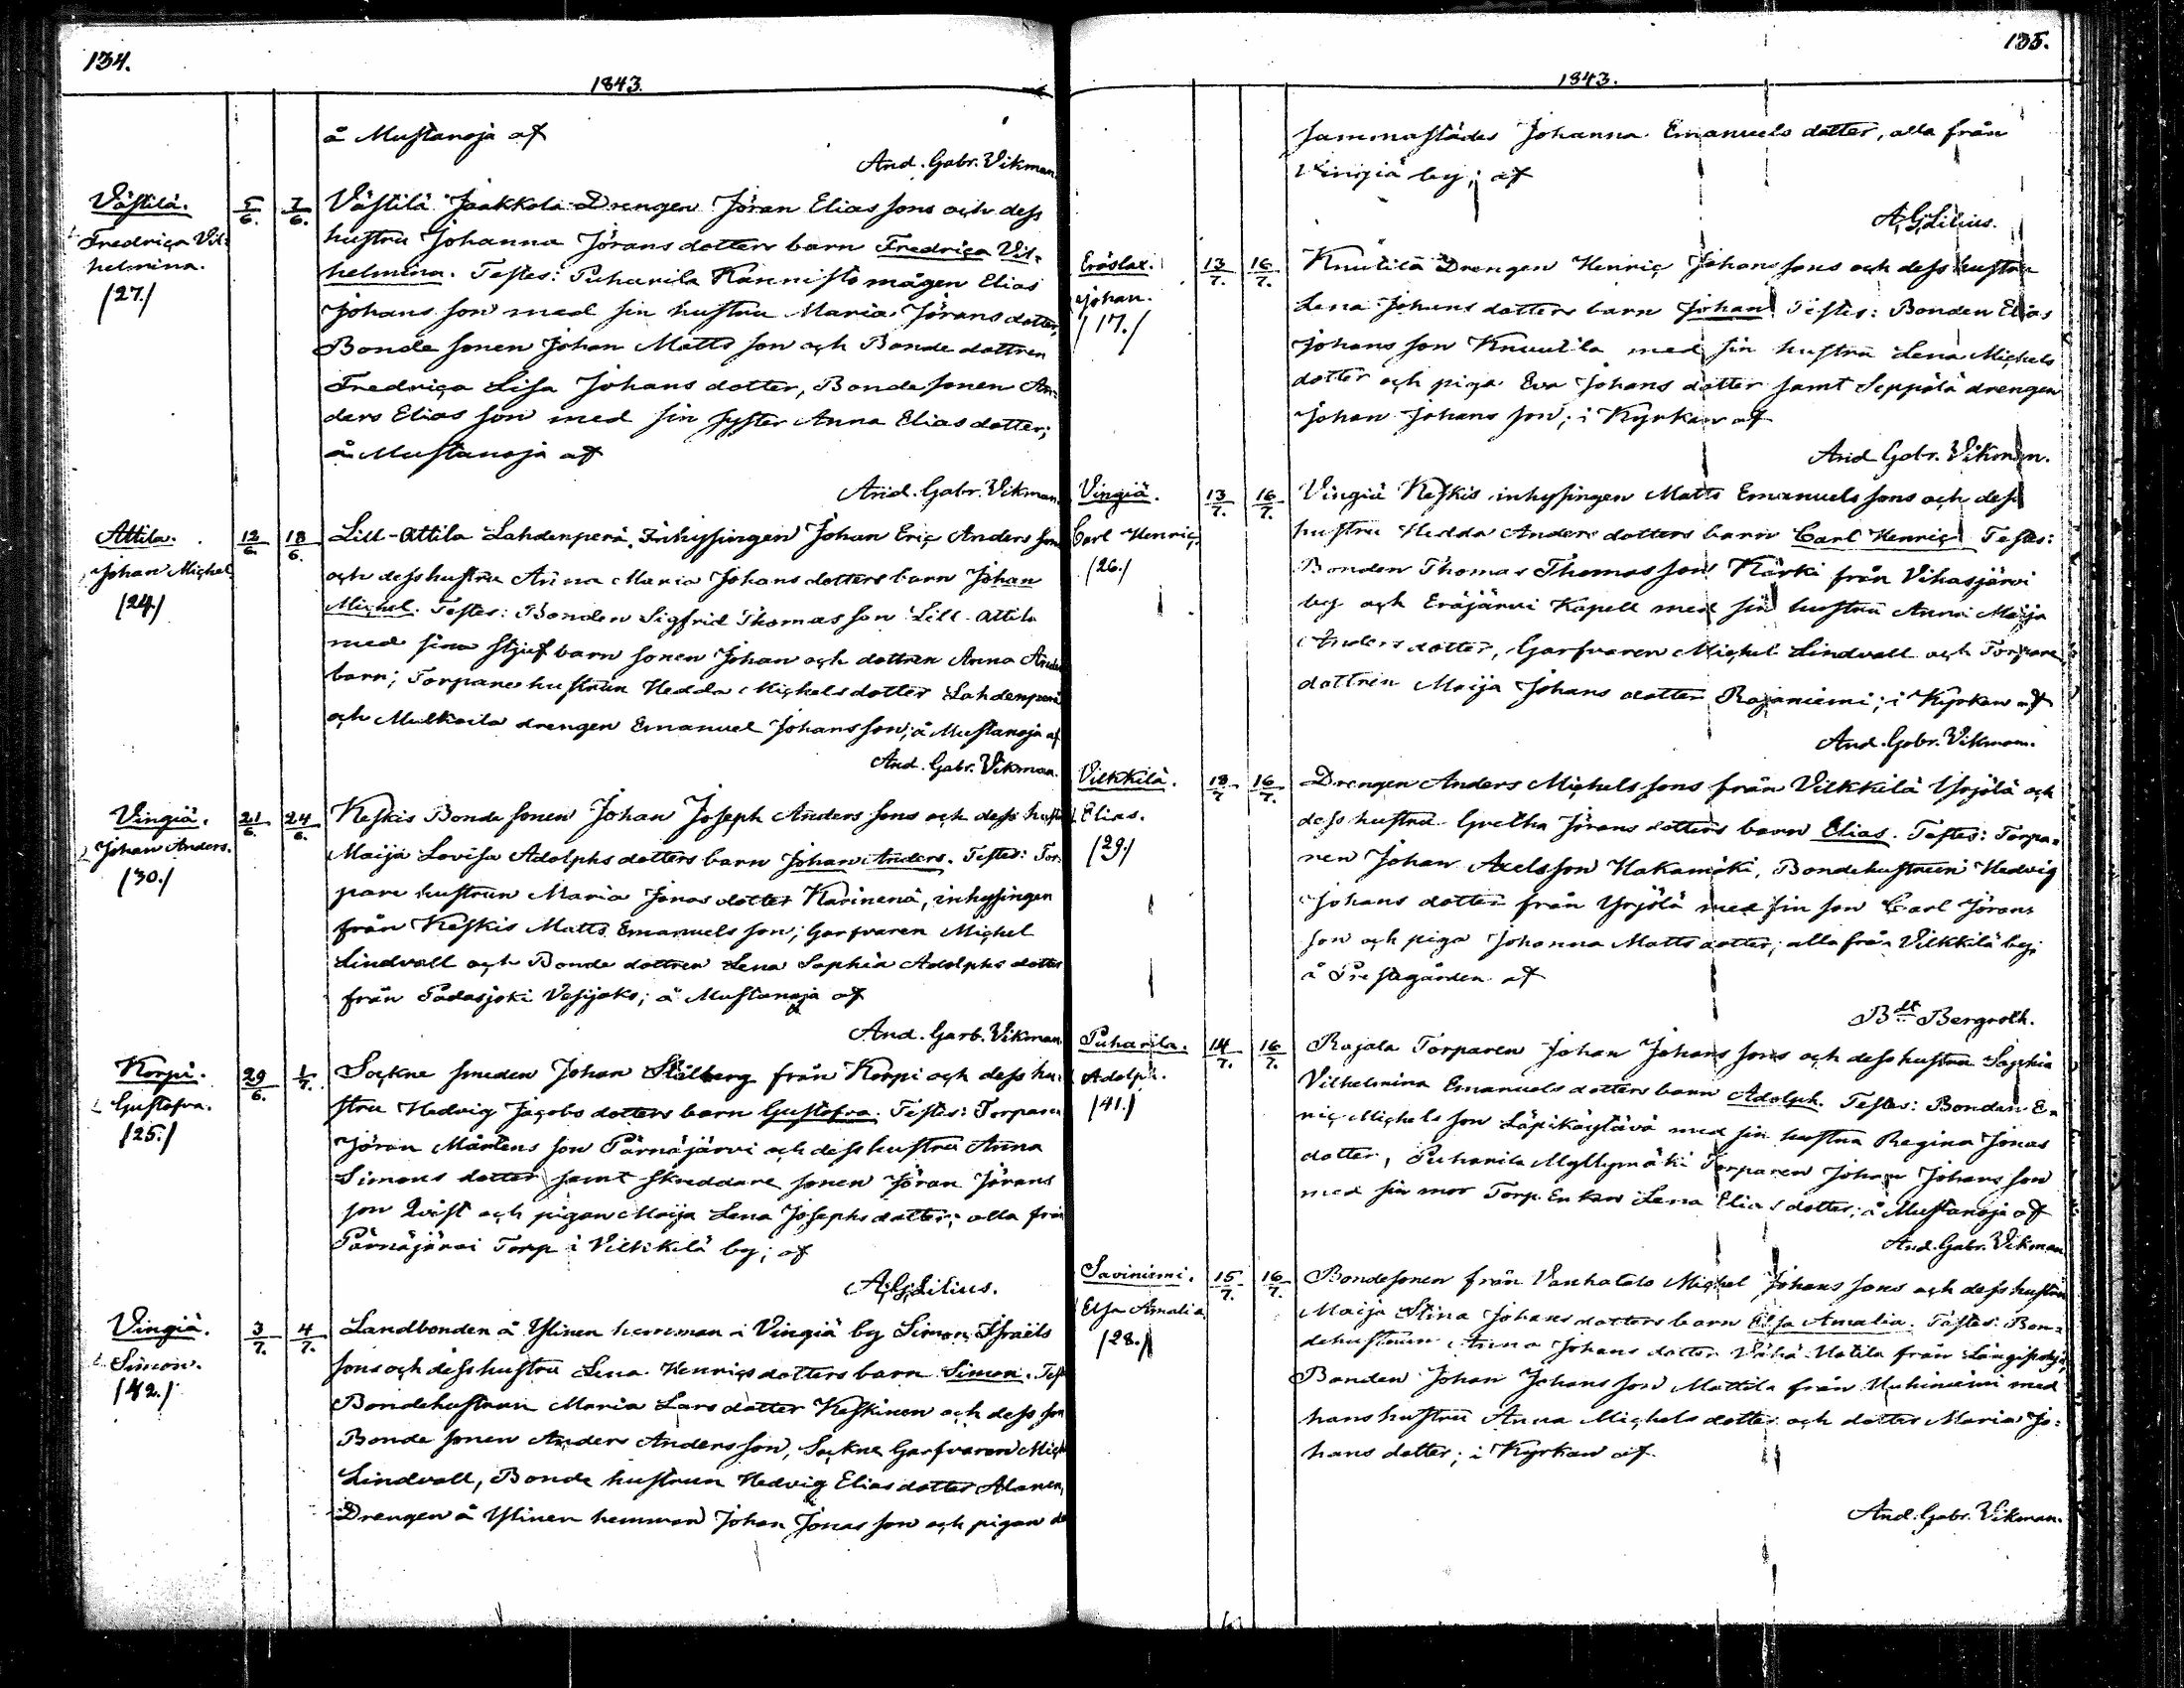 134.
1843.
å Mustanoja af
And. Gabr. Vikman.
Västilä.
Fredrica Vil=
helmina.
/27./
5/6. 7/6.
Västilä Jaakkola Drengen Jöran Elias sons och dess
hustru Johanna Jörans dotters barn Fredrica Vil=
helmina. Testes: Puharila Kannisto mågen Elias
Johans son med sin hustru Maria Jörans dotter,
Bonde sonen Johan Matts son och Bonde dottren
Fredrica Lisa Johans dotter, Bonde sonen An=
ders Elias son med sin syster Anna Elias dotter;
å Mustanoja af
And. Gabr. Vikman.
Attila.
Johan Michel
/24./
12/6. 18/6.
Lill-Attila Lahdenperä Inhysingen Johan Eric Anders sons
och dess hustru Anna Maria Johans dotters barn Johan
Michel. Testes: Bonden Sigfrid Thomas son Lill-Attila
med sina stjuf barn sonen Johan och dottren Anna Anders
barn; Torpare hustrun Hedda Michels dotter Lahdenperä
och Mulkoila drengen Emanuel Johans son; å Mustanoja af
And. Gabr. Vikman.
Vingiä.
Johan Anders.
/30./
21/6. 24/6.
Keskis Bonde sonen Johan Joseph Anders sons och dess hustru
Maija Lovisa Adolphs dotters barn Johan Anders. Testes: Tor=
pare hustrun Maria Jonas dotter Karinenä, inhysingen
från Keskis Matts Emanuels son; Garfvaren Michel
Lindvall och Bonde dottren Lena Sophia Adolphs dotter
från Padasjoki Vesijako; å Mustanoja af
And. Garb. Vikman.
Korpi.
Gustafva.
/25./
29/6. 1/7.
Sockne smeden Johan Stålberg från Korpi och dess hu=
stru Hedvig Jacobs dotters barn Gustafva. Testes: Torparen
Jöran Mårtens son Pärnäjärvi och dess hustru Anna
Simons dotter samt skreddare sonen Jöran Jörans
son Qvist och pigan Maija Lena Josephs dotter; alla från
Pärnäjärvi Torp i Vilkkilä by; af
A. G. Lilius.
Vingiä.
Simon.
/42./
3/7. 4/7.
Landbonden å Ylinen hemman i Vingiä by Simon Israëls
sons och dess hustru Lena Henrics dotters barn Simon. Test
Bondehustrun Maria Lars dotter Keskinen och dess son
Bonde sonen Anders Anders son, Sockne Garfvaren Mich
Lindvall, Bonde hustrun Hedvig Elias dotter Alanen,
Drengen å Ylinen hemman Johan Jonas son och pigan de
135.
1843.
sammastädes Johanna Emanuels dotter, alla från
Vingiä by; af
A. G. Lilius.
Eräslax.
Johan.
/17./
13/7. 16/7.
Knutila Drengen Henric Johans sons och dess hustru
Lena Johans dotters barn Johan Testes: Bonden Elias
Johans son Knuutila med sin hustru Lena Michels
dotter och piga Eva Johans dotter samt Seppälä drengen
Johan Johans son; i Kyrkan af
And. Gabr. Vikman.
Vingiä.
Carl Henric.
/26./
13/7. 16/7.
Vingiä Keskis inhysingen Matts Emanuels sons och dess
hustru Hedda Anders dotters barn Carl Henric Testes:
Bonden Thomas Thomas son Kärki från Vihasjärvi
by och Eräjärvi Kapell med sin hustru Anna Maija
Anders dotter, Garfvaren Michel Lindvall och Torpare
dottren Maija Johans dotter Rajaniemi; i Kyrkan af
And. Gabr. Vikman.
Vilkkilä.
Elias.
/29./
13/7 16/7.
Drengen Anders Michels sons från Vilkkilä Yrjölä och
dess hustru Gretha Jörans dotters barn Elias. Testes: Torpa=
ren Johan Axelsson Hakamäki, Bondehustrun Hedvig
Johans dotter från Yrjölä med sin son Carl Jörans
son och piga Johanna Matts dotter; alla från Vilkkilä by;
å Prestegården af
Bdt Bergroth.
Puharila.
Adolph.
/41./
14/7. 16/7.
Rajala Torparen Johan Johans sons och dess hustru Sophia
Vilhelmina Emanuels dotters barn Adolph. Testes: Bonden E=
ric Michels son Läpikäytävä med sin hustru Regina Jonas
dotter, Puharila Myllymäki Torparen Johan Johans son
med sin mor Torp. Enkan Lena Elias dotter; å Mustanoja af
And. Gabr. Vikman
Saviniemi.
Elsa Amalia
/28./
15/7. 16/7.
Bondesonen från Vanhatalo Michel Johans sons och dess hustru
Maija Stina Johans dotters barn Elsa Amalia. Testes: Bon=
dehustrun Anna Johans dotter Vähä-Uotila från Längipohja,
Bonden Johan Johans son Mattila från Uuhiniemi med
hans hustru Anna Michels dotter och dotter Maria Jo=
hans dotter; i Kyrkan af
And. Gabr. Vikman.